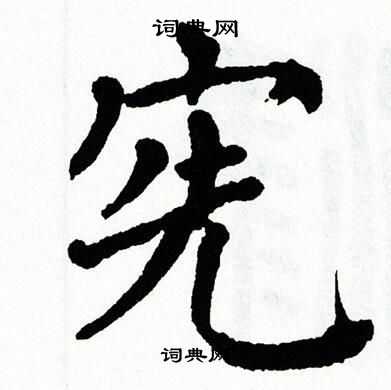 词典网
宪
词典网